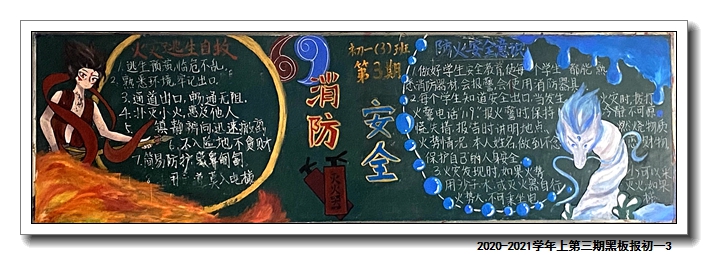 火灾逃生自救
1.逃生预演,临危不乱.
2.熟悉环境牢记出口.
3.通道出口,畅通无阻.
4.扑灭小火,惠及他人
5.镇静辨向迅速撤离
6.不入险地不贪财
7.简易防护蒙鼻匍匐
初一(3)班
第3期
消防
安全
防火安全意识
1.做好学生安全教育使每个学生都能熟
悉消防器材会报警会使用消防器具
2.每个学生知道安全出口.当发生火灾时,拨打
火警电话"119"报火警时保持冷静不可惊
慌失措.报告时讲明地点.燃烧物质
火势情况.本人姓名.做到不恋财物
保护自己的人身安全
3.火灾发现时,如果火势小可以采
用沙子木或灭火器自行灭火.如果
2020-2021学年上第三期黑板报初一3